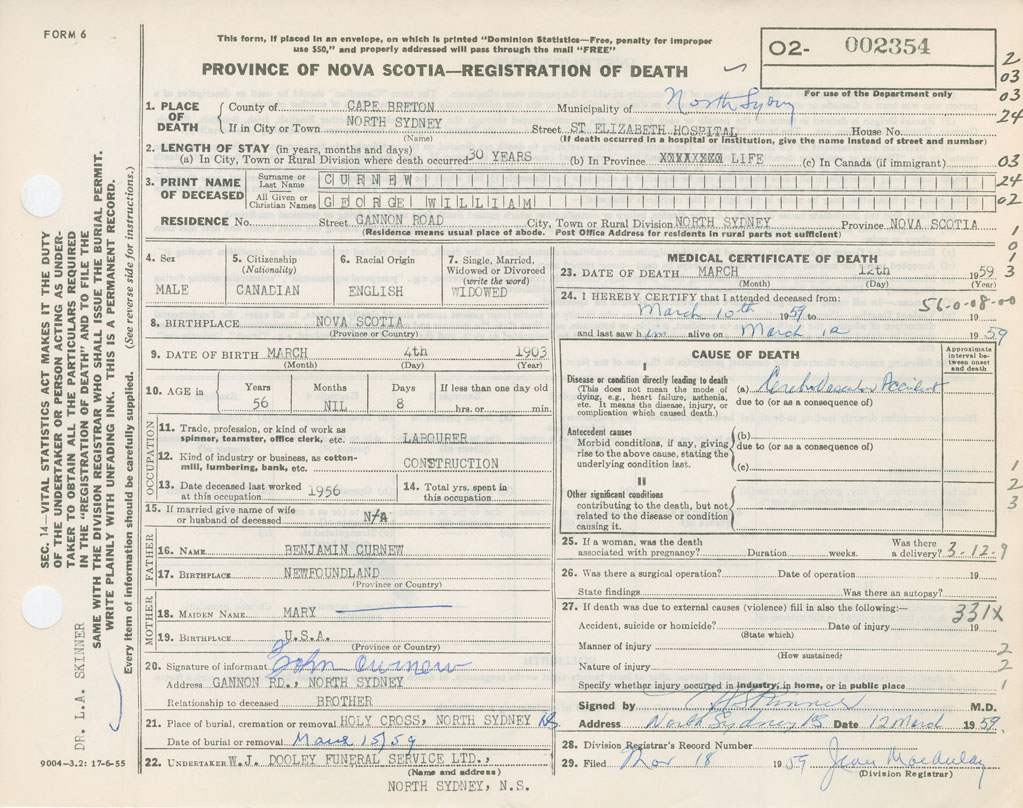 FORM 6
This form, if placed in an envelope, on which is printed "Dominion Statistics—Free, penalty for improper
use $50," and properly addressed will pass through the mail "FREE"
PROVINCE OF NOVA SCOTIA—REGISTRATION OF DEATH
O2- 002354
For use of the Department only
2
03
03
24
1. PLACE OF DEATH
County of CAPE BRETON Municipality of North Sydney
If in City or Town NORTH SYDNEY Street ST ELIZABETH HOSPITAL House No.
(Name) (If death occurred in a hospital or institution, give the name instead of street and number)
2. LENGTH OF STAY (in years, months and days)
(a) In City, Town or Rural Division where death occurred 30 YEARS (b) In Province LIFE (c) In Canada (if immigrant) 03
3. PRINT NAME OF DECEASED
Surname or Last Name CURNEW 24
All Given or Christian Names GEORGE WILLIAM 02
RESIDENCE No. Street GANNON ROAD City, Town or Rural Division NORTH SYDNEY Province NOVA SCOTIA
(Residence means usual place of abode. Post Office Address for residents in rural parts not sufficient)
1
0
1
3
4. Sex
MALE
5. Citizenship
(Nationality)
CANADIAN
6. Racial Origin
ENGLISH
7. Single, Married,
Widowed or Divorced
(write the word)
WIDOWED
8. BIRTHPLACE NOVA SCOTIA
(Province or Country)
9. DATE OF BIRTH MARCH 4th 1903
(Month) (Day) (Year)
10. AGE in Years Months Days If less than one day old
56 NIL 8 hrs. or min.
OCCUPATION
11. Trade, profession, or kind of work as
spinner, teamster, office clerk, etc. LABOURER
12. Kind of industry or business, as cotton-
mill, lumbering, bank, etc. CONSTRUCTION
13. Date deceased last worked
at this occupation 1956
14. Total yrs. spent in
this occupation
15. If married give name of wife
or husband of deceased N/A
FATHER
16. NAME BENJAMIN CURNEW
17. BIRTHPLACE NEWFOUNDLAND
(Province or Country)
MOTHER
18. MAIDEN NAME MARY
19. BIRTHPLACE U.S.A.
(Province or Country)
20. Signature of informant John Curnew
Address GANNON RD., NORTH SYDNEY
Relationship to deceased BROTHER
21. Place of burial, cremation or removal HOLY CROSS, NORTH SYDNEY NS
Date of burial or removal March 15/59
22. UNDERTAKER W.J. DOOLEY FUNERAL SERVICE LTD.,
(Name and address)
NORTH SYDNEY, N.S.
MEDICAL CERTIFICATE OF DEATH
23. DATE OF DEATH MARCH 12th 1959
(Month) (Day) (Year)
24. I HEREBY CERTIFY that I attended deceased from: 56-0-08-00
March 10th 1959 to 19
and last saw him alive on March 12 1959
CAUSE OF DEATH
Approximate
interval be-
tween onset
and death
I
Disease or condition directly leading to death
(This does not mean the mode of
dying, e.g., heart failure, asthenia,
etc. It means the disease, injury, or
complication which caused death.)
(a) Cerebro Vascular Accident
due to (or as a consequence of)
Antecedent causes
Morbid conditions, if any, giving
rise to the above cause, stating the
underlying condition last.
(b)
due to (or as a consequence of)
(c)
II
Other significant conditions
contributing to the death, but not
related to the disease or condition
causing it.
1
2
3
25. If a woman, was the death
associated with pregnancy? Duration weeks. Was there
a delivery? 3-12-9
26. Was there a surgical operation? Date of operation 19
State findings Was there an autopsy?
27. If death was due to external causes (violence) fill in also the following:— 331X
Accident, suicide or homicide? Date of injury 19
(State which)
Manner of injury 2
(How sustained)
Nature of injury 2
Specify whether injury occurred in industry, in home, or in public place 1
Signed by Skinner M.D.
Address North Sydney NS Date 12 March 1959
28. Division Registrar's Record Number
29. Filed Mar 18 1959 Jean MacAulay
(Division Registrar)
SEC. 14—VITAL STATISTICS ACT MAKES IT THE DUTY
OF THE UNDERTAKER OR PERSON ACTING AS UNDER-
TAKER TO OBTAIN ALL THE PARTICULARS REQUIRED
IN THE "REGISTRATION OF DEATH" AND TO FILE THE
SAME WITH THE DIVISION REGISTRAR WHO SHALL ISSUE THE BURIAL PERMIT.
WRITE PLAINLY WITH UNFADING INK. THIS IS A PERMANENT RECORD.
Every item of information should be carefully supplied. (See reverse side for instructions.)
DR. L.A. SKINNER
9004-3.2: 17-6-55